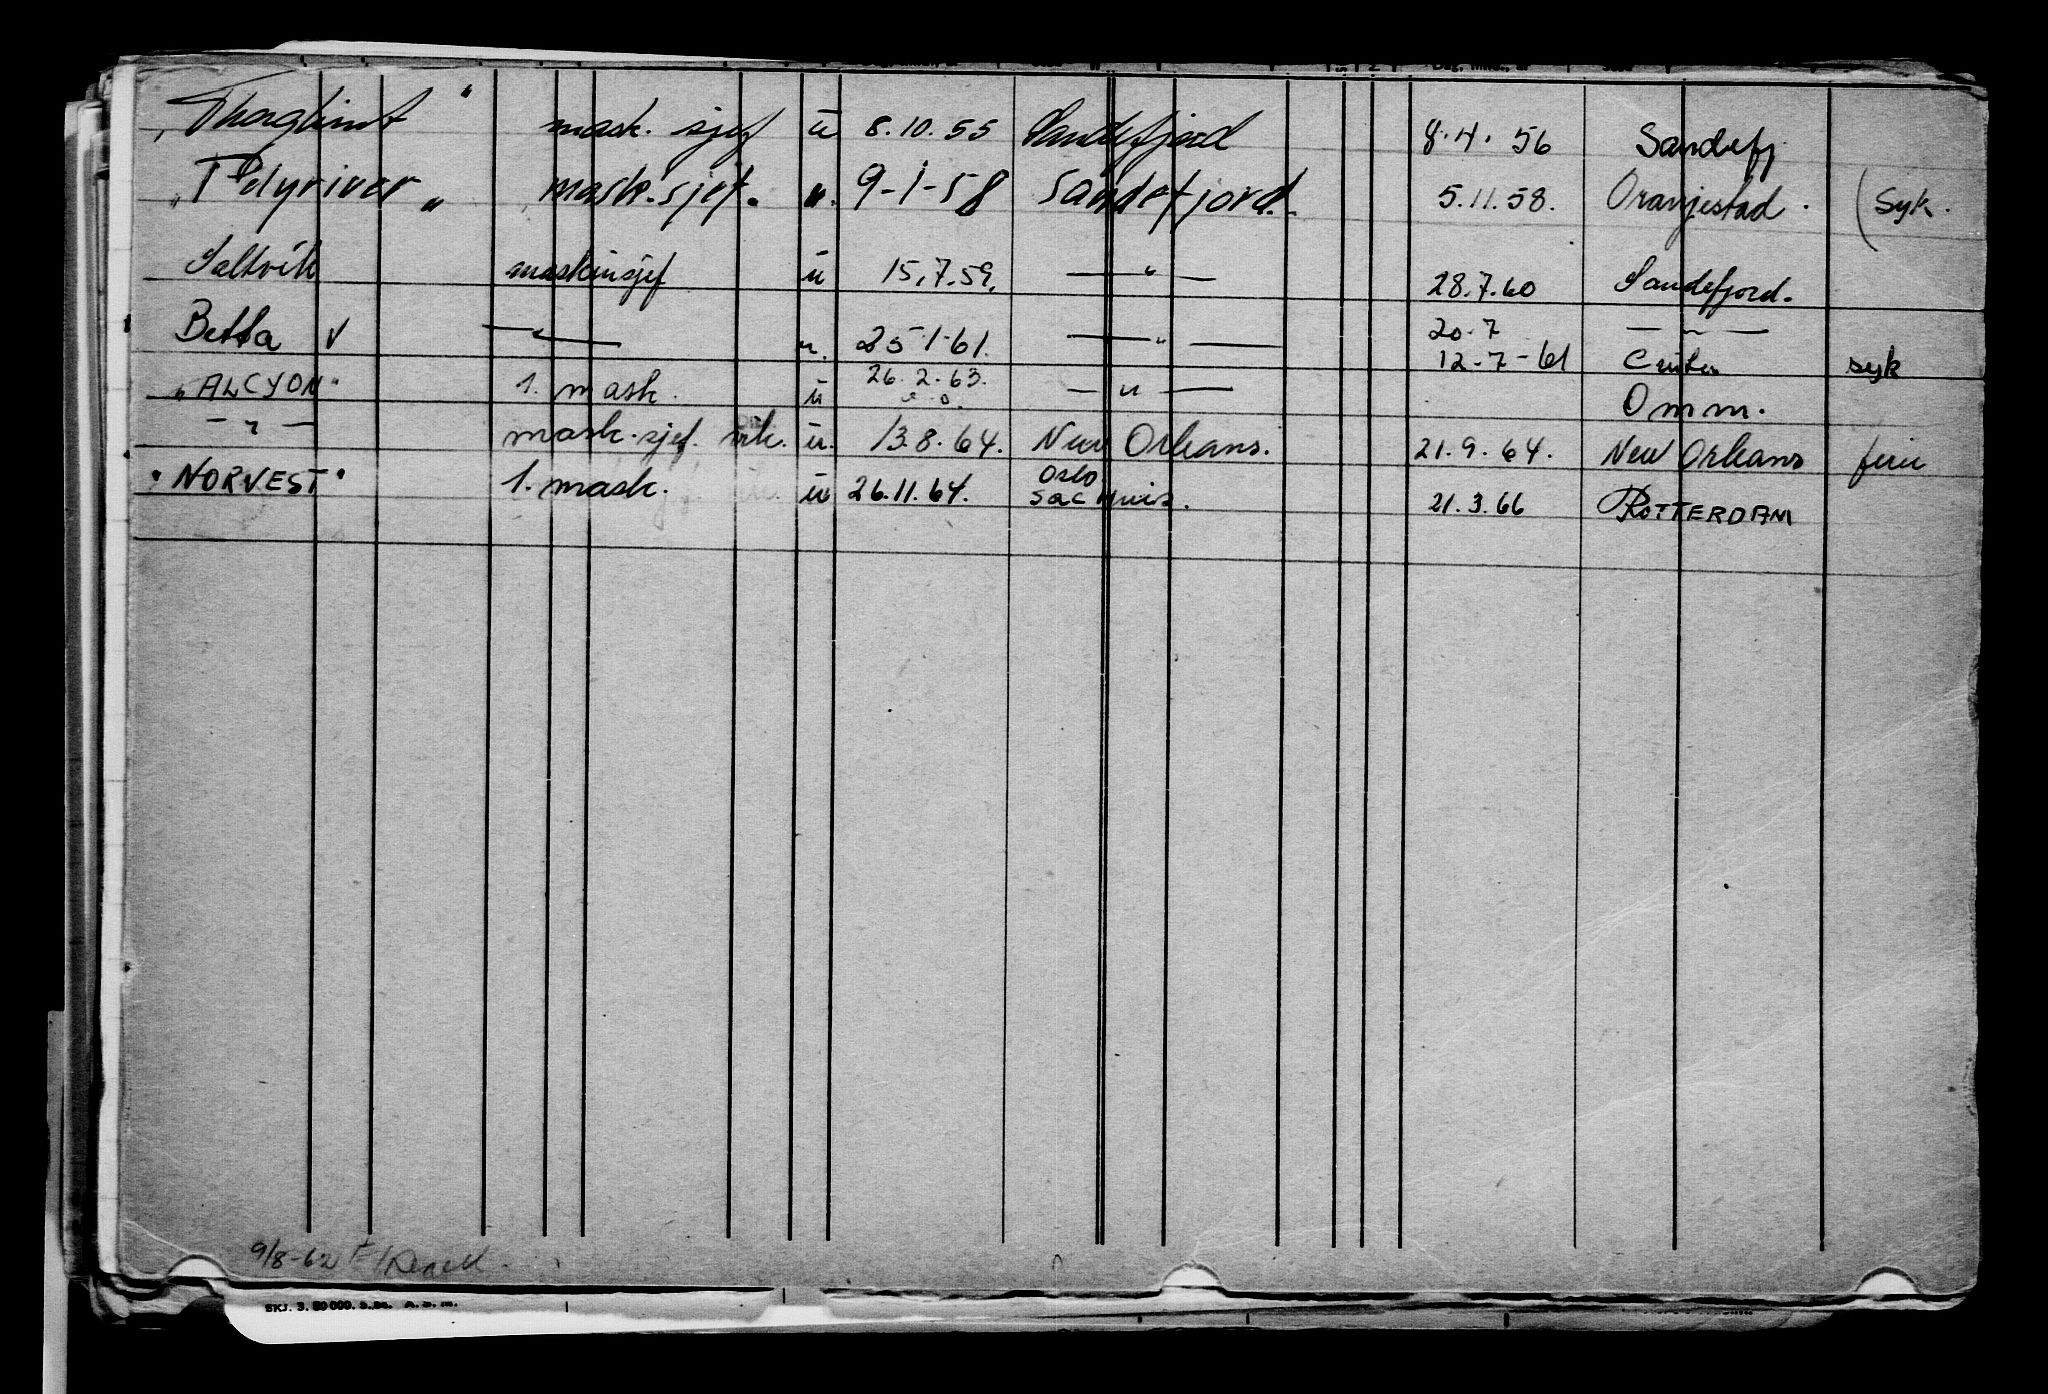 "Thorglimt" mask. sjef u 8.10.55 Sandefjord 8.4.56 Sandefj
"Polyriver" mask. sjef. ". 9-1-58 Sandefjord. 5.11.58. Oranjestad. (Syk.
Saltvik maskinsjef u 15.7.59. — " — 28.7.60 Sandefjord.
Betta √ — " — u. 25.1.61. — " — 20.7 — " —
12-7-61 syk
"ALCYON" 1. mask. u 26.2.63. — " — Omm.
— " — mask. sjef. vik. u. 13.8.64. New Orleans. 21.9.64. New Orleans ferie
"NORVEST" 1. mask. u 26.11.64. Oslo 21.3.66 ROTTERDAM
9/8-62
SKJ. 3. 80 000. A. S. M.